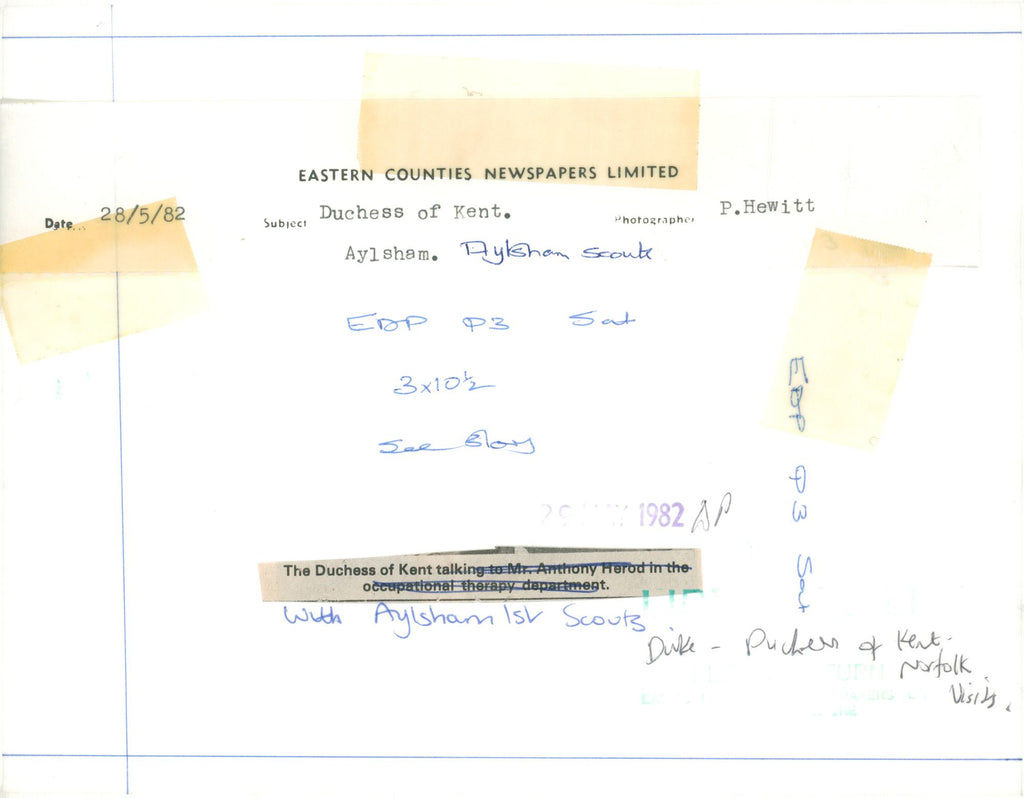 EASTERN COUNTIES NEWSPAPERS LIMITED
Date... 28/5/82 Subject Duchess of Kent. Photographer P.Hewitt
Aylsham. Aylsham Scouts
EDP P3 Sat
3x10½
See Story
EDP P3 Sat
29 MAY 1982 DP
The Duchess of Kent talking to Mr. Anthony Herod in the
occupational therapy department.
with Aylsham 1st Scouts
Duke - Duchess of Kent -
Norfolk
Visits.